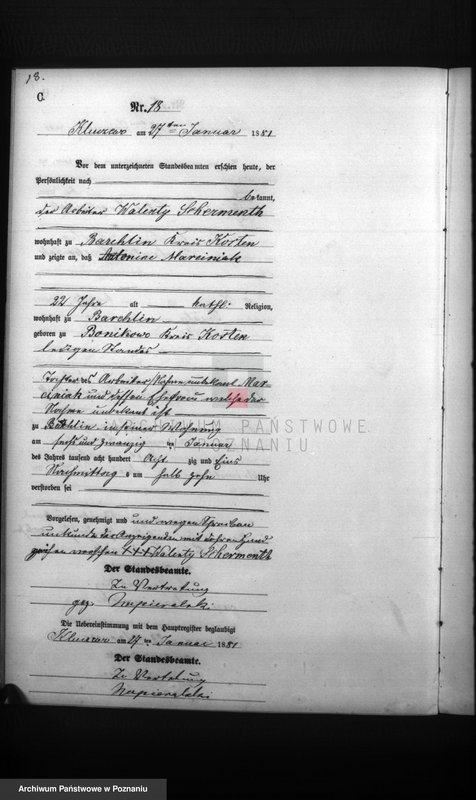 18.
C.
Nr. 18
Kluczewo am 27ten Januar 1881
Vor dem unterzeichneten Standesbeamten erschien heute, der
Persönlichkeit nach
bekannt,
der Arbeiter Walenty Schermenth
wohnhaft zu Barchlin Kreis Kosten
und zeigte an, daß Antonine Marciniak
22 Jahre alt kathl: Religion,
wohnhaft zu Barchlin
geboren zu Bonikowo Kreis Kosten
ledigen Standes
Tochter des Arbeiters Nahme unbekant Mar-
ciniak und dessen Ehefrau welche der
Nahme unbekant ist
zu Bachlin in seiner Wohnung
am sechs und zwanzig ten Januar
des Jahres tausend acht hundert Acht zig und Eins
Nachmittag s um halb zehn Uhr
verstorben sei
Vorgelesen, genehmigt und und wegen Schreiben
unkunde des Anzeigenden mit Hand
zeichen +++ Walenty Schermenth
Der Standesbeamte.
In Vertretung
gez. Napieralski
Die Uebereinstimmung mit dem Hauptregister beglaubigt
Kluczewo am 27 ten Januar 1881
Der Standesbeamte.
In Vertretung
Napieralski
ARCHIWUM PAŃSTWOWE
W POZNANIU
Archiwum Państwowe w Poznaniu